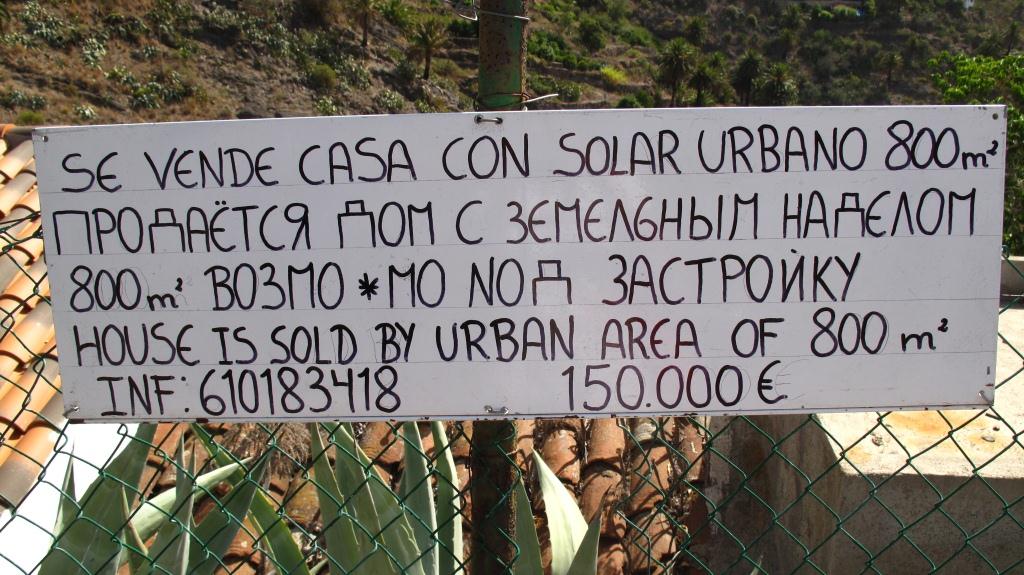 SE VENDE CASA CON SOLAR URBANO 800m²
ПРОДАЁТСЯ ДОМ С ЗЕМЕЛЬНЫМ НАДЕЛОМ
800m² ВОЗМО*МО NОД ЗАСТРОЙКУ
HOUSE IS SOLD BY URBAN AREA OF 800 m²
INF: 610183418 150.000€